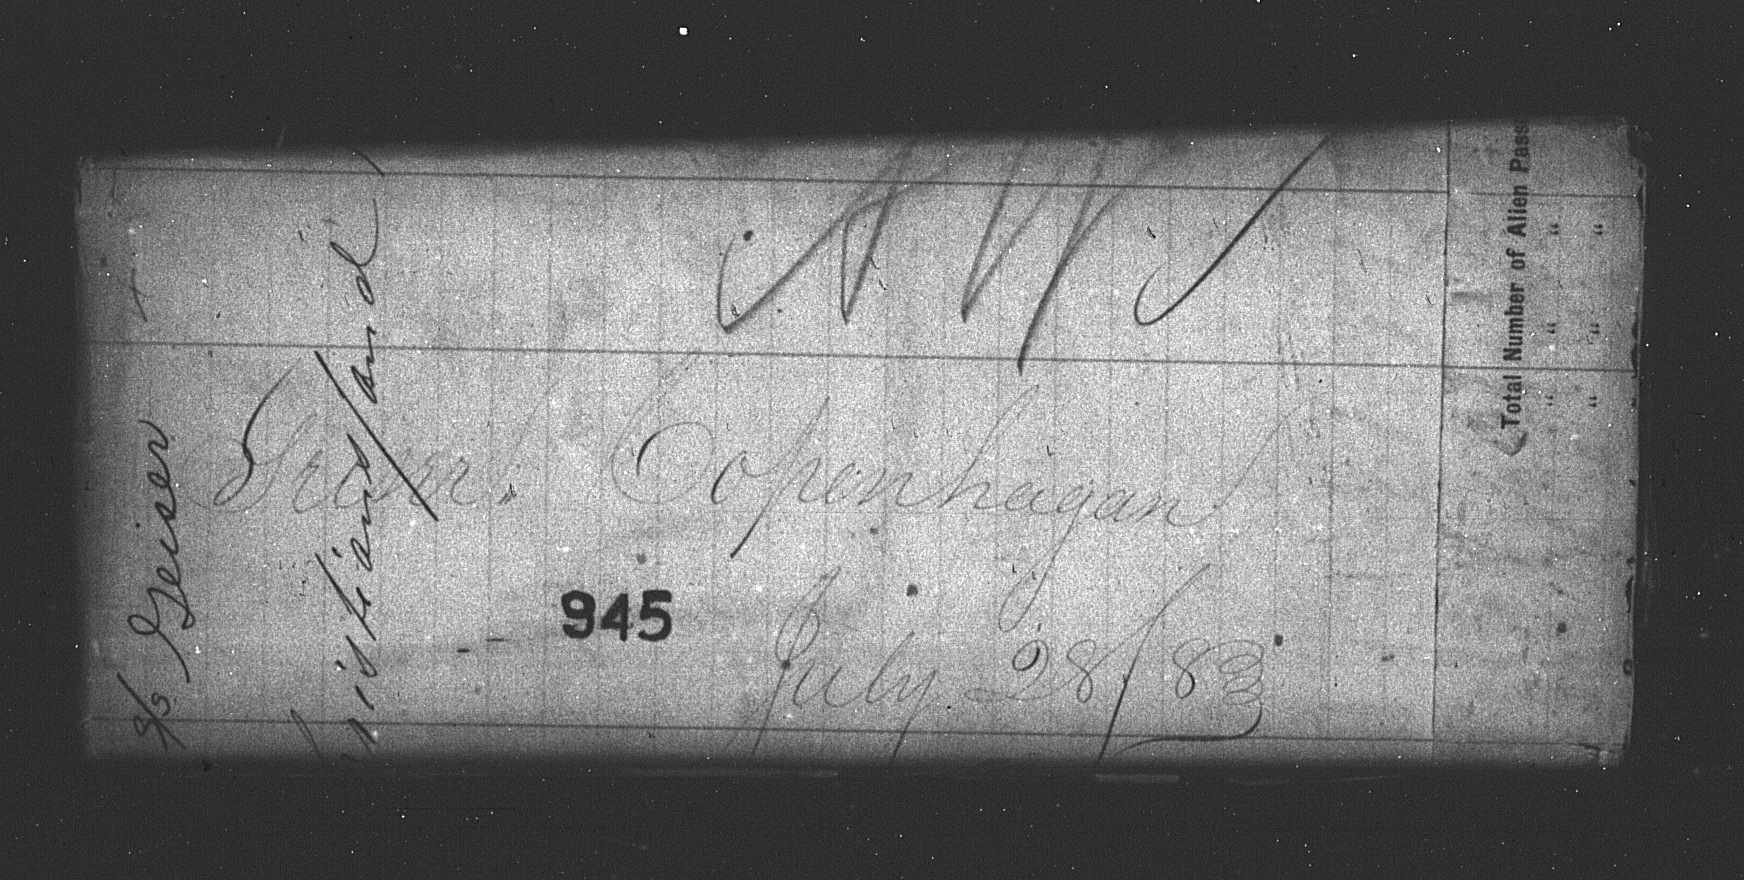 S/S Geiser
Christiansand
Geiser. Copenhagan
July 28/83
945
Total Number of Alien Pass
" " "
" " "